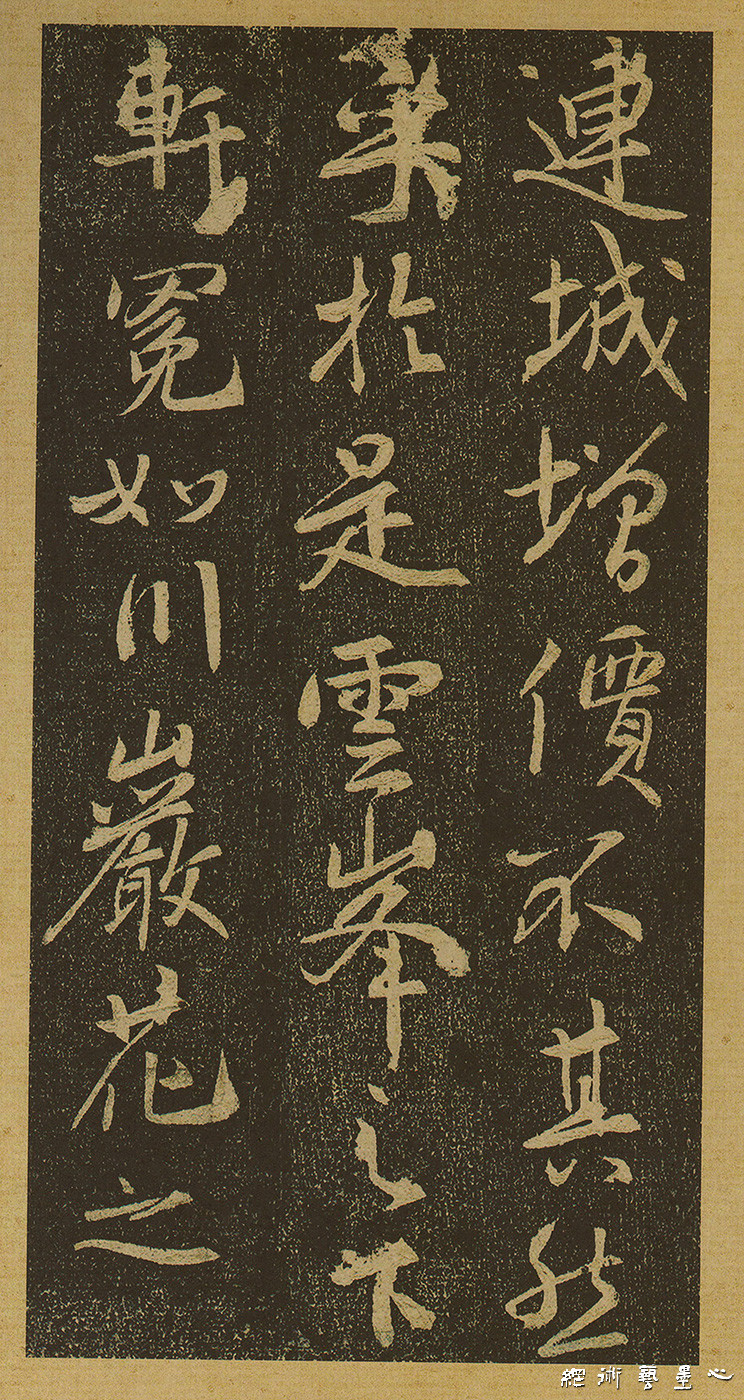 連城增價不其然
於是雲峯之下
軒冕如川巖花之
心墨藝術網